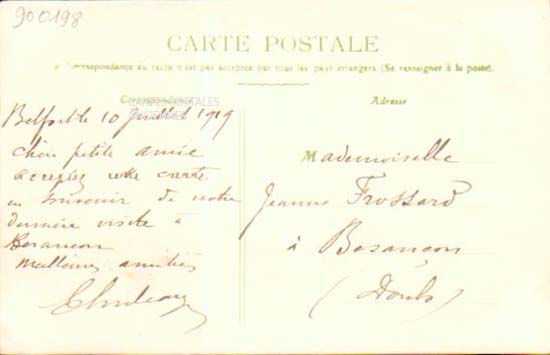 900198
CARTE POSTALE
Correspondance au recto n'est pas acceptée par tous les pays étrangers (Se renseigner à la poste)
Correspondance
CARTES POSTALES
Adresse
10 Juillet 1919
chère petite amie
acceptez cette carte
en souvenir de notre
dernière visite à
Besançon
meilleures amitiés
Mademoiselle
Jeanne Frossard
à Besançon
(Doubs)